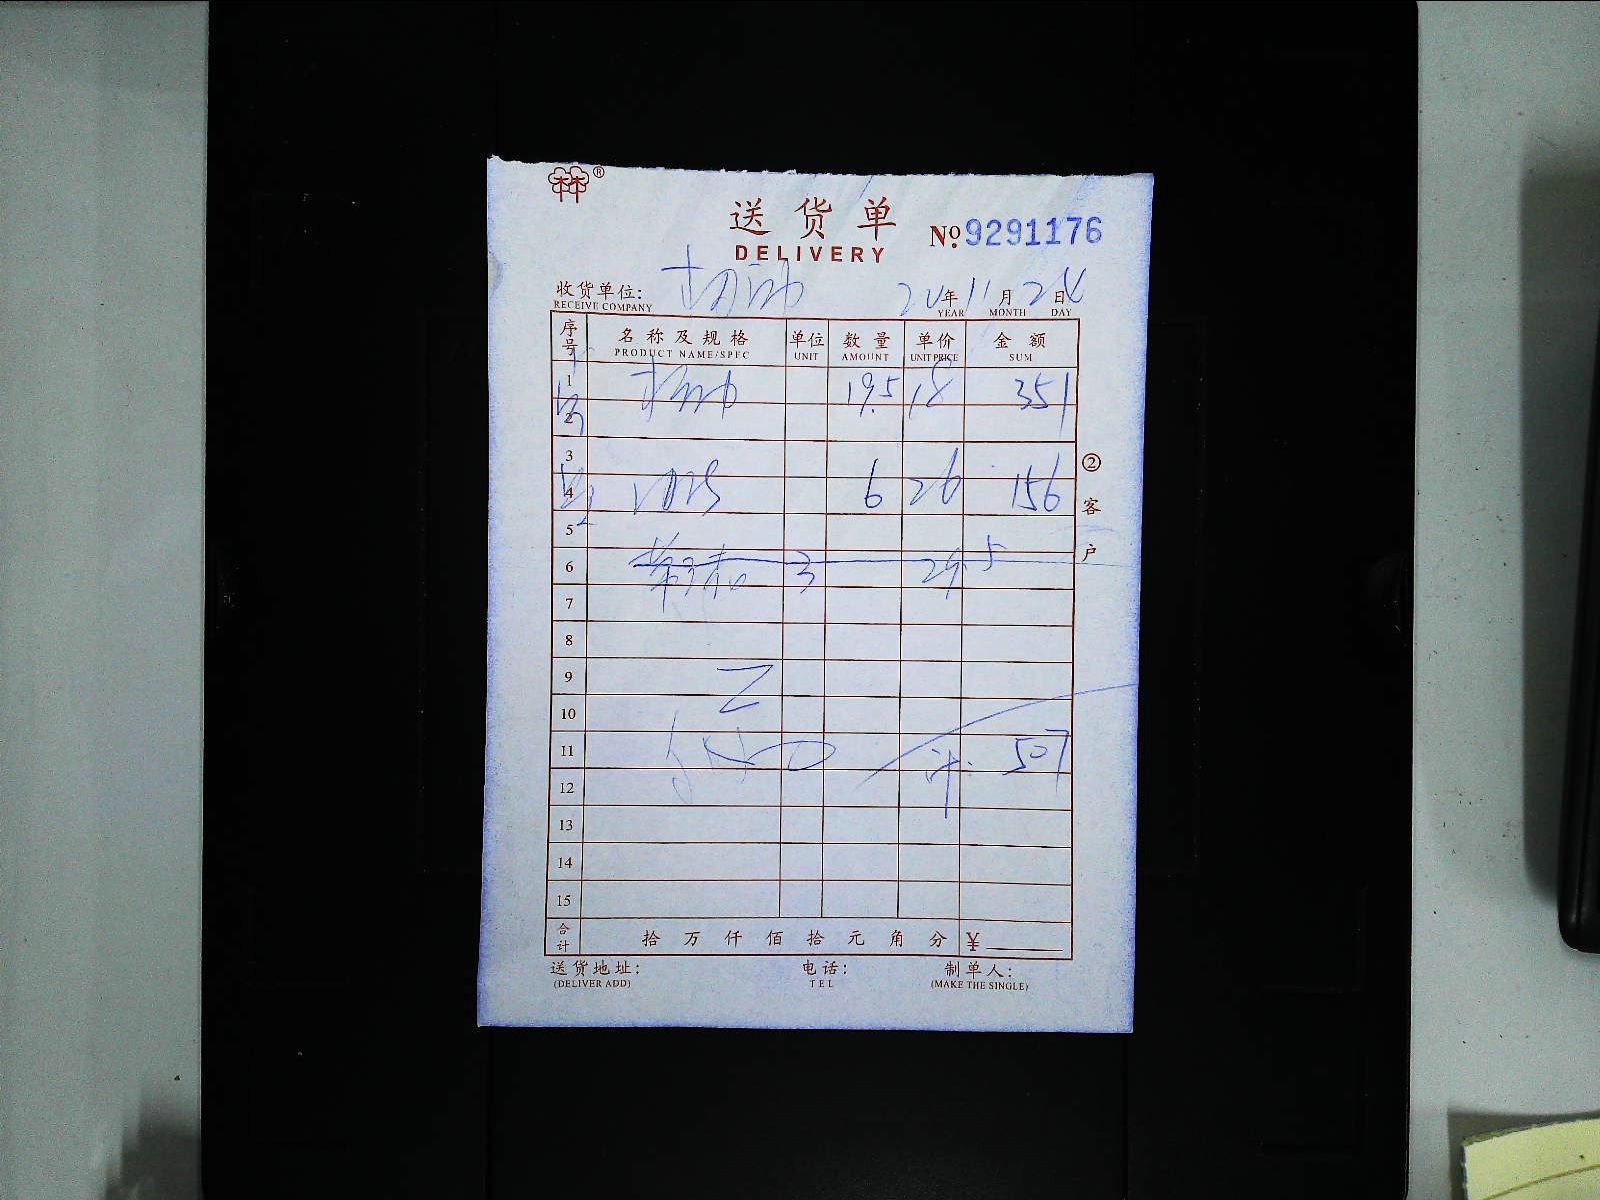 林®
送货单
DELIVERY
№ 9291176
收货单位:
RECEIVE COMPANY
20年11月24日
YEAR MONTH DAY
序号 名称及规格 单位 数量 单价 金额
PRODUCT NAME/SPEC UNIT AMOUNT UNIT PRICE SUM
1 19.5 18 351
2
3
4 6 26 156
5
6 3 29.5
7
8
9
10
11 计. 507
12
13
14
15
合计 拾 万 仟 佰 拾 元 角 分 ¥
② 客户
送货地址: 电话: 制单人:
(DELIVER ADD) TEL (MAKE THE SINGLE)